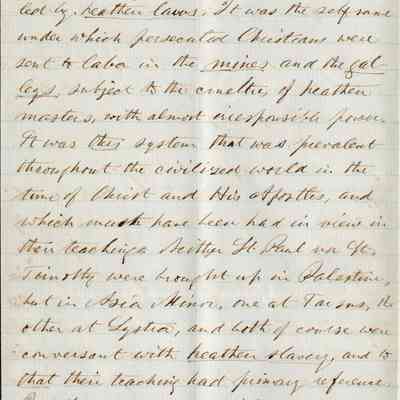 led by heathen laws. It was the self same
under which persecuted Christians were
sent to labor in the mines and the gal-
leys, subject to the cruelties of heathen
masters, with almost irresponsible power.
It was this system that was prevalent
throughout the civilized world in the
time of Christ and His Apostles, and
which must have been had in view in
their teachings Neither St. Paul nor St.
Timothy were brought up in Palestine,
but in Asia Minor, one at Tarsus, the
other at Lystra, and both of course were
conversant with heathen slavery, and to
that their teaching had primary reference